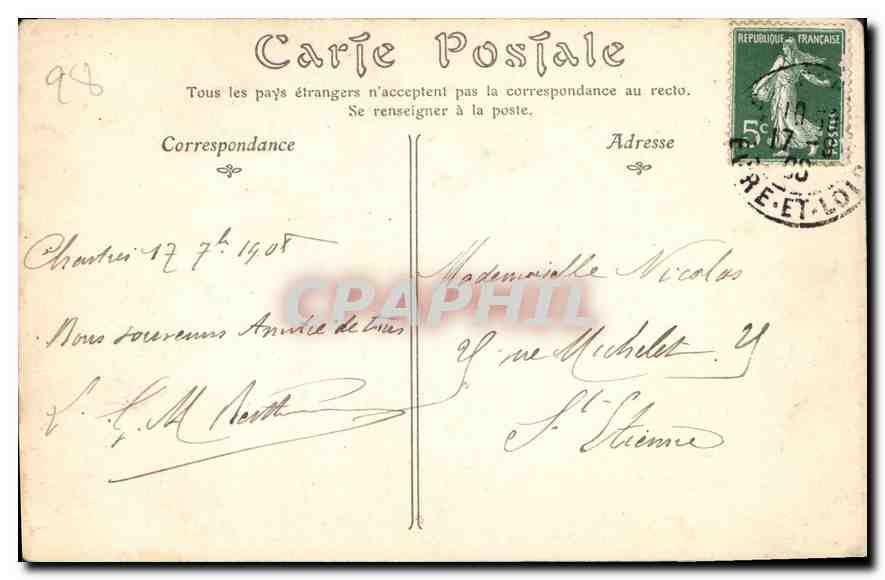 98
Carte Postale
Tous les pays étrangers n'acceptent pas la correspondance au recto.
Se renseigner à la poste.
REPUBLIQUE FRANÇAISE
5c
POSTES
17
EURE-ET-LOIR
Correspondance
Adresse
Chartres 17 7bre 1908
Bons souvenirs Amitiés de tous
Mademoiselle Nicolas
25 rue Michelet 25
St Etienne
CPAPHIL